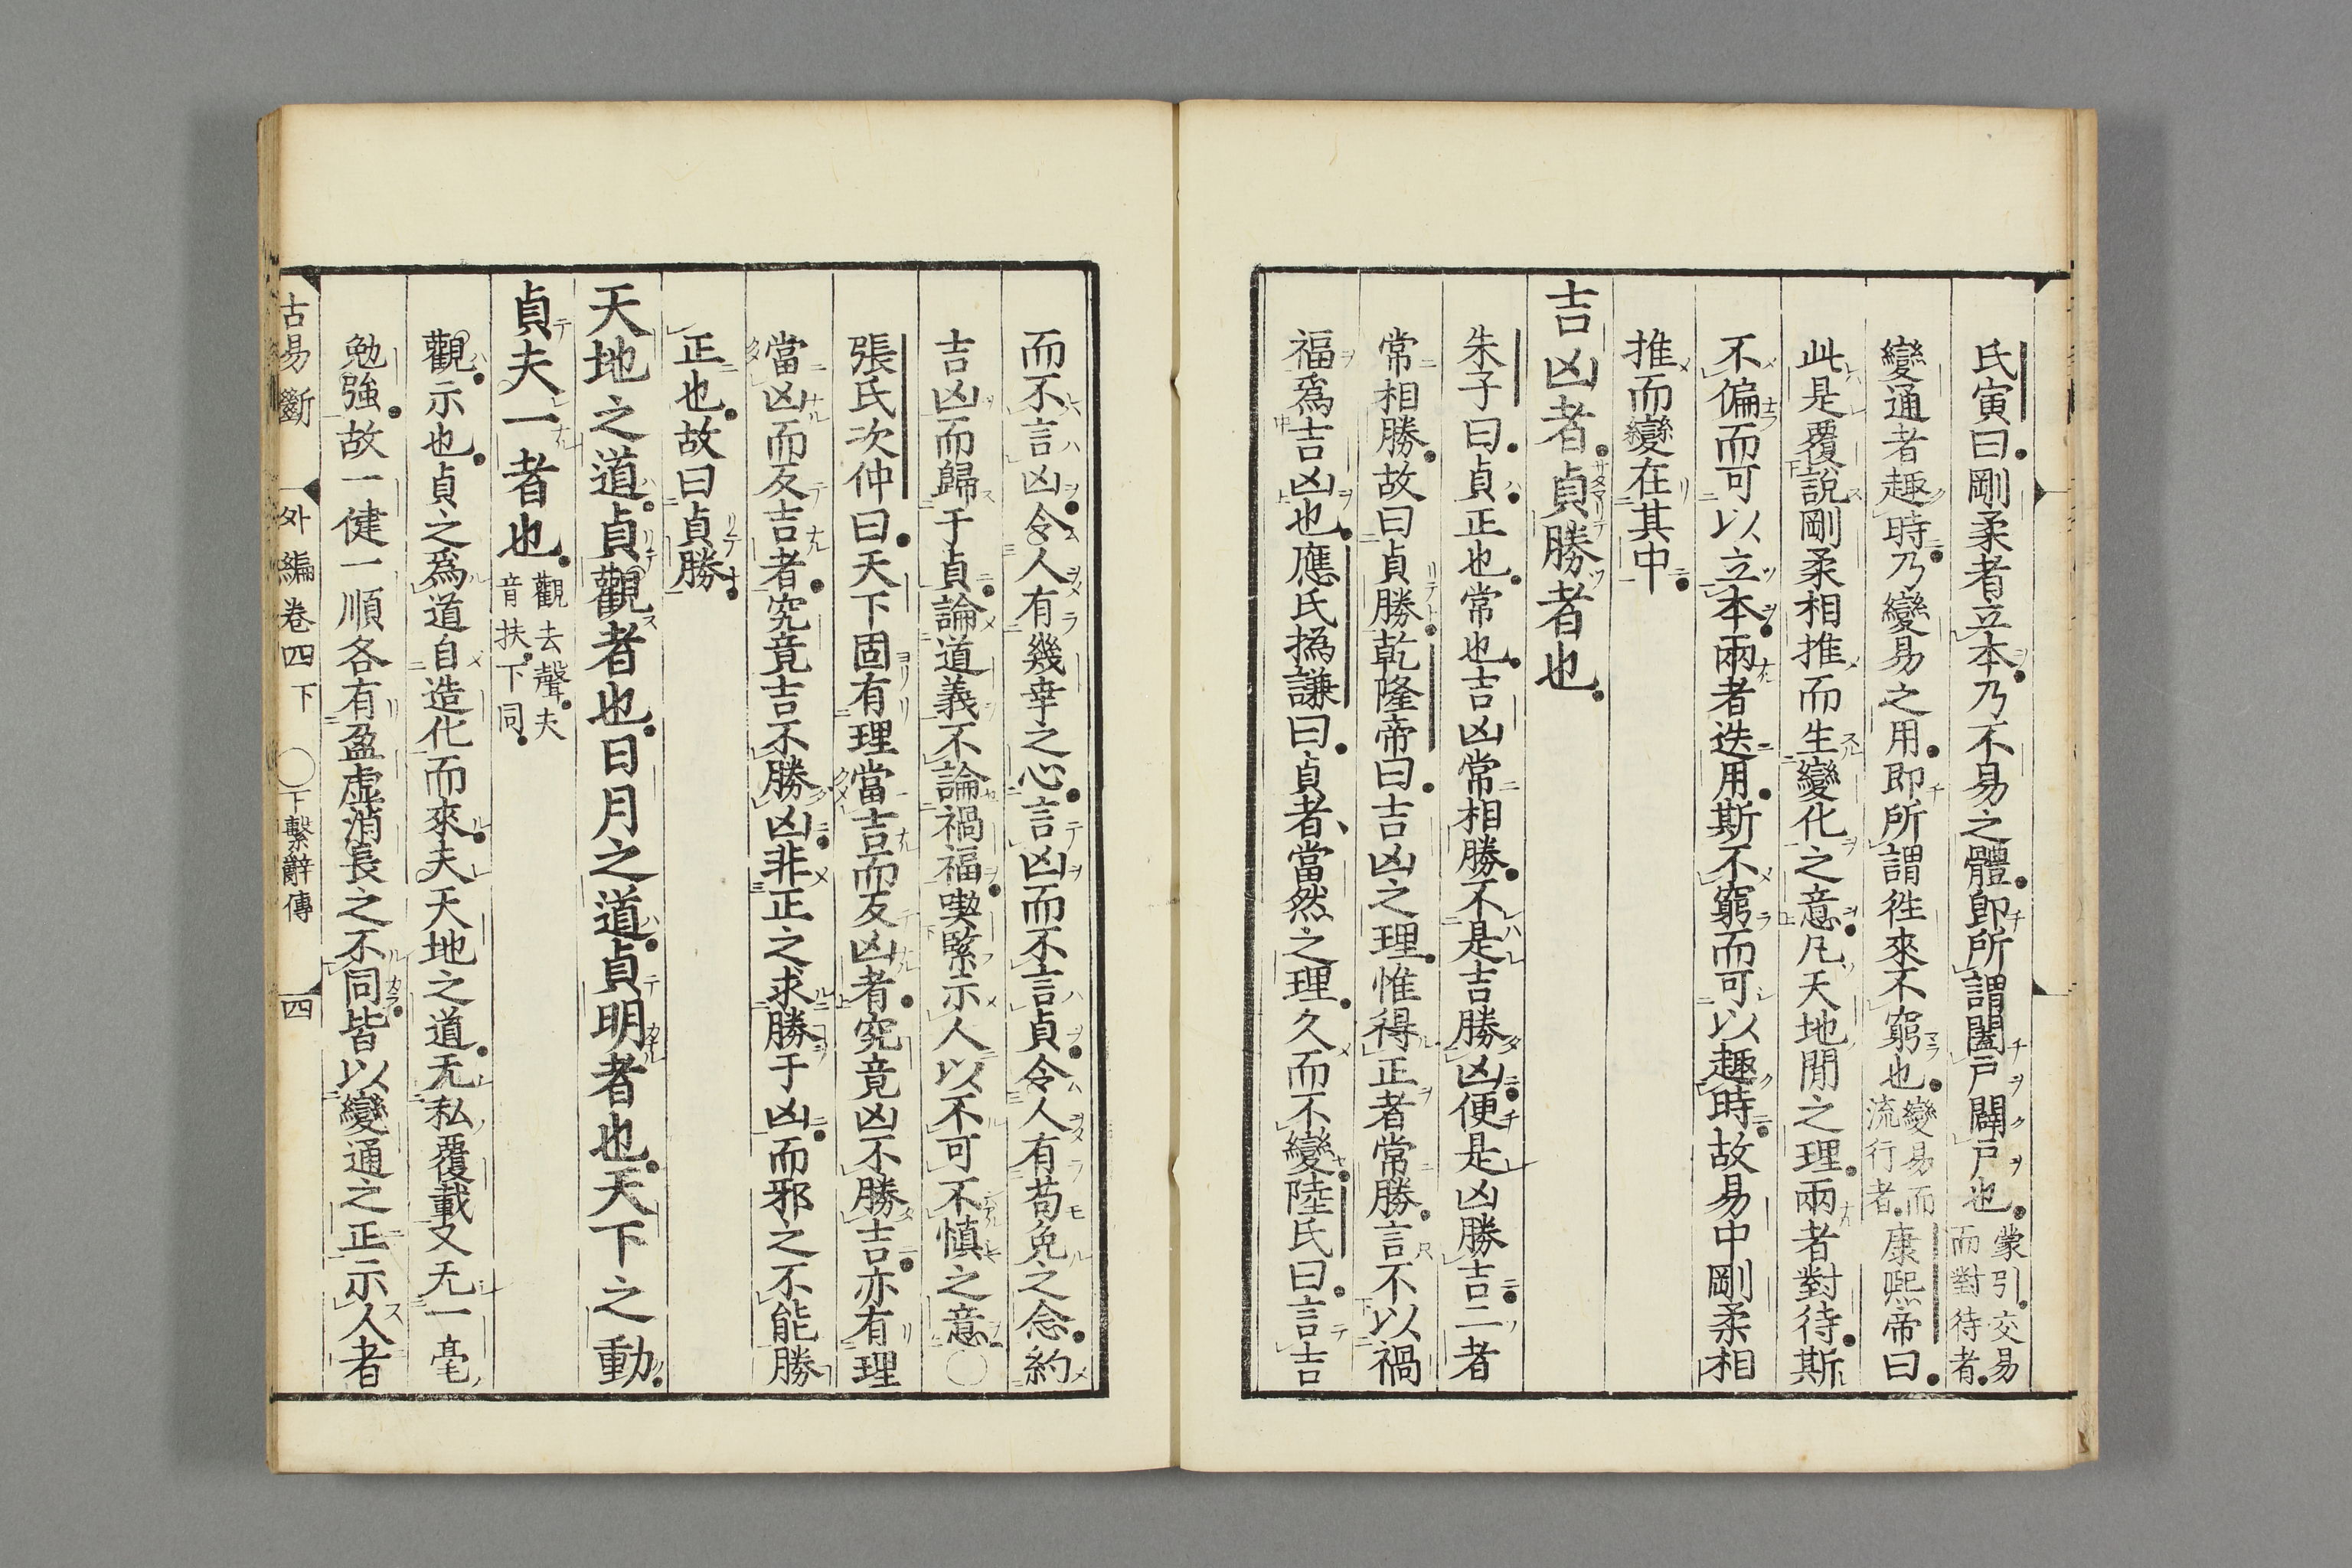 氏寅曰剛柔者立本乃不易之體即所謂闔戶闢戶也蒙引交易
而對待者
變通者趣時乃變易之用即所謂徃來不窮也變易而
流行者康熙帝曰
此是覆說剛柔相推而生變化之意凡天地間之理兩者對待斯
不偏而可以立本兩者迭用斯不窮而可以趣時故易中剛柔相
推而變在其中
吉凶者貞勝者也
朱子曰貞正也常也吉凶常相勝不是吉勝凶便是凶勝吉二者
常相勝故曰貞勝乾隆帝曰吉凶之理惟得正者常勝言不以禍
福爲吉凶也應氏撝謙曰貞者當然之理久而不變陸氏曰言吉
而不言凶令人有幾幸之心言凶而不言貞令人有苟免之念約
吉凶而歸于貞論道義不論禍福喫緊示人以不可不慎之意〇
張氏次仲曰天下固有理當吉而反凶者究竟凶不勝吉亦有理
當凶而反吉者究竟吉不勝凶非正之求勝于凶而邪之不能勝
正也故曰貞勝
天地之道貞觀者也日月之道貞明者也天下之動
貞夫一者也觀去聲夫
音扶下同
觀示也貞之爲道自造化而來夫天地之道无私覆載又无一毫
勉強故一健一順各有盈虛消長之不同皆以變通之正示人者
古易斷 外編卷四下 〇下繫辭傳 四